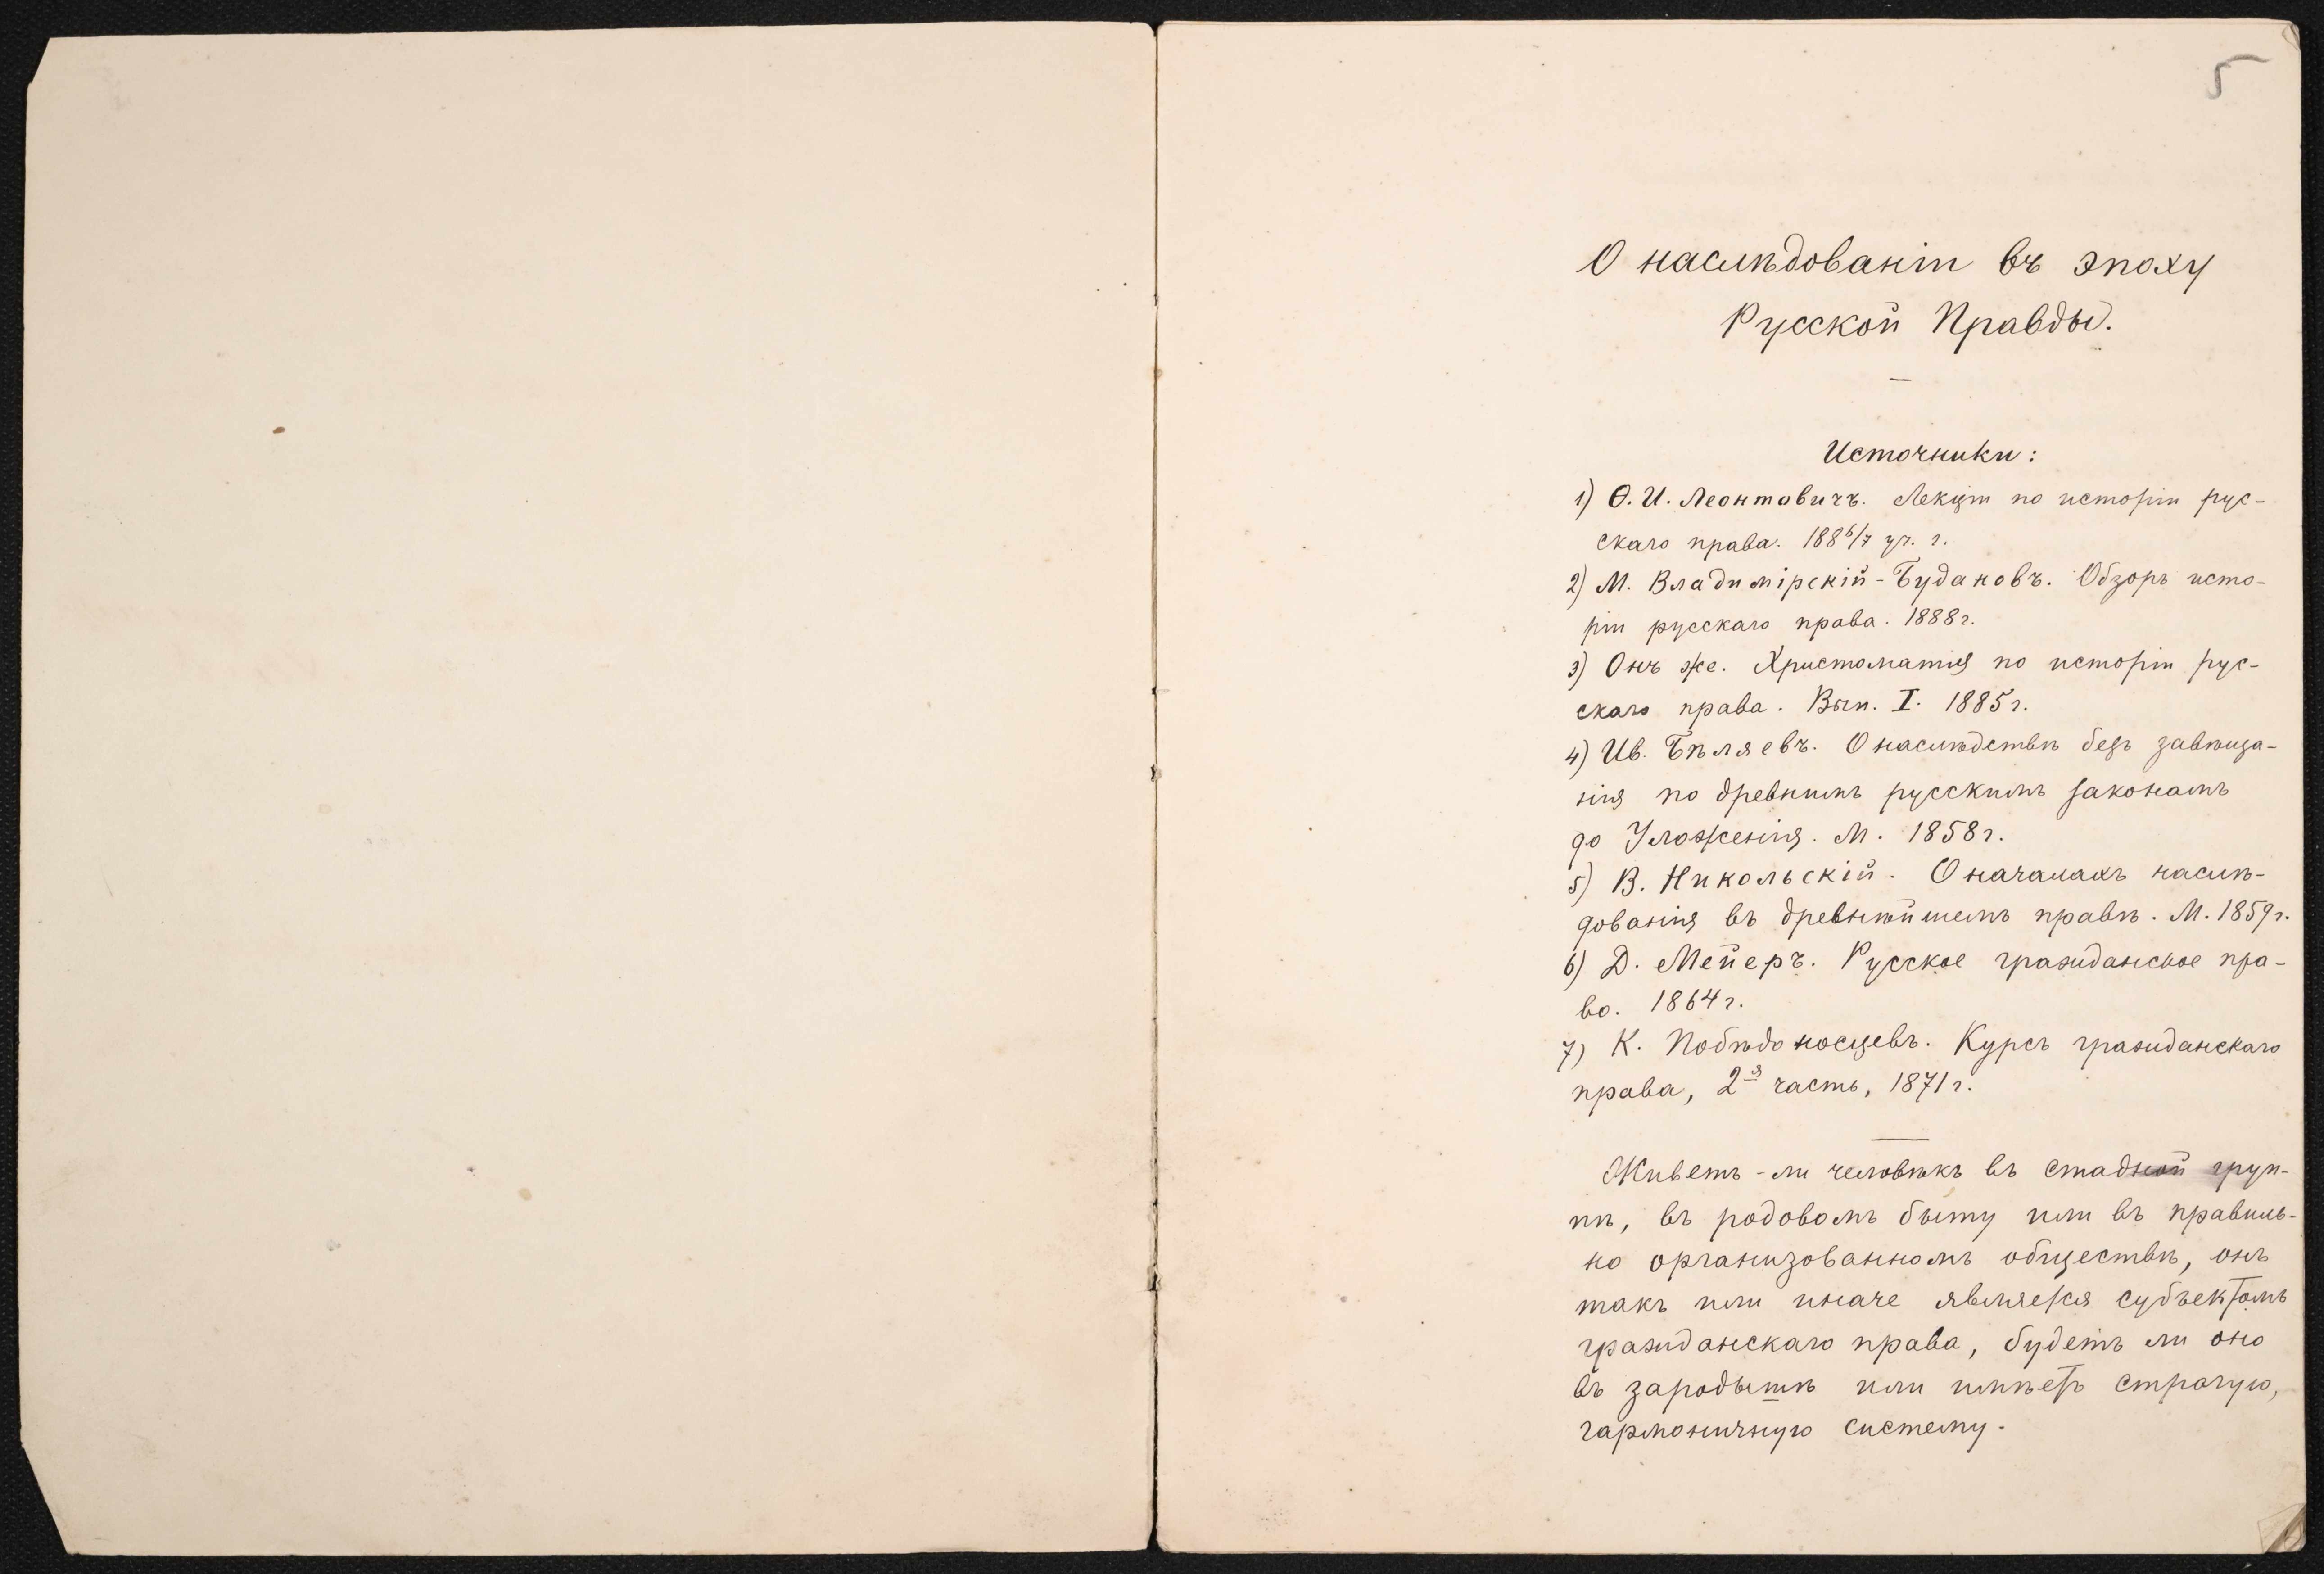 5
О наслѣдованіи въ эпоху
Русской Правды.
Источники:
1) Ѳ. И. Леонтовичъ. Лекціи по исторіи рус-
скаго права. 1886/7 уч. г.
2) М. Владимірскій-Будановъ. Обзоръ исто-
ріи русскаго права. 1888 г.
3) Онъ же. Христоматія по исторіи рус-
скаго права. Вып. I. 1885 г.
4) Ив. Бѣляевъ. О наслѣдствѣ безъ завѣща-
нія по древнимъ русскимъ законамъ
до Уложенія. М. 1858 г.
5) В. Никольскій. О началахъ наслѣ-
дованія въ древнѣйшемъ правѣ. М. 1859 г.
6) Д. Мейеръ. Русское гражданское пра-
во. 1864 г.
7) К. Побѣдоносцевъ. Курсъ гражданскаго
права, 2-я часть, 1871 г.
Живетъ-ли человѣкъ въ стадной груп-
пѣ, въ родовомъ быту или въ правиль-
но организованномъ обществѣ, онъ
такъ или иначе является субъектомъ
гражданскаго права, будетъ ли оно
въ зародышѣ или имѣетъ строгую,
гармоничную систему.